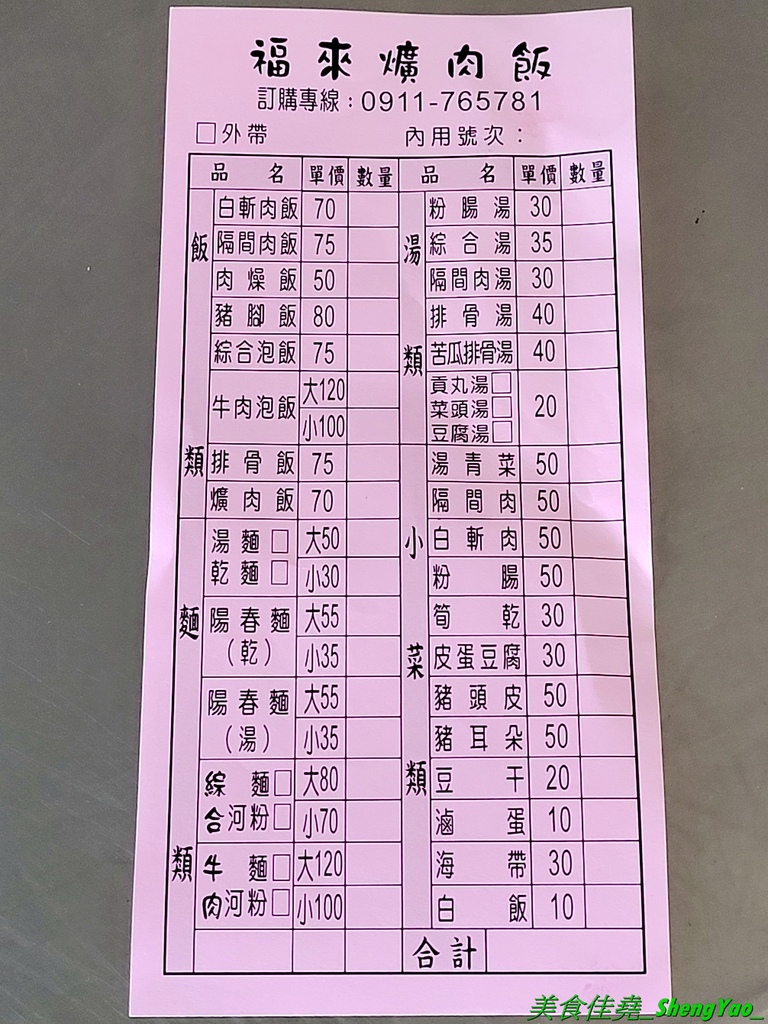 福來爌肉飯
訂購專線：0911-765781
□外帶 內用號次：
品名 單價 數量 品名 單價 數量
飯類
白斬肉飯 70
隔間肉飯 75
肉燥飯 50
豬腳飯 80
綜合泡飯 75
牛肉泡飯 大120
小100
排骨飯 75
爌肉飯 70
麵類
湯麵□ 大50
乾麵□ 小30
陽春麵 大55
（乾） 小35
陽春麵 大55
（湯） 小35
綜 麵□ 大80
合河粉□ 小70
牛 麵□ 大120
肉河粉□ 小100
湯類
粉腸湯 30
綜合湯 35
隔間肉湯 30
排骨湯 40
苦瓜排骨湯 40
貢丸湯□
菜頭湯□ 20
豆腐湯□
小菜類
湯青菜 50
隔間肉 50
白斬肉 50
粉腸 50
筍乾 30
皮蛋豆腐 30
豬頭皮 50
豬耳朵 50
豆干 20
滷蛋 10
海帶 30
白飯 10
合計
美食佳堯_ShengYao_